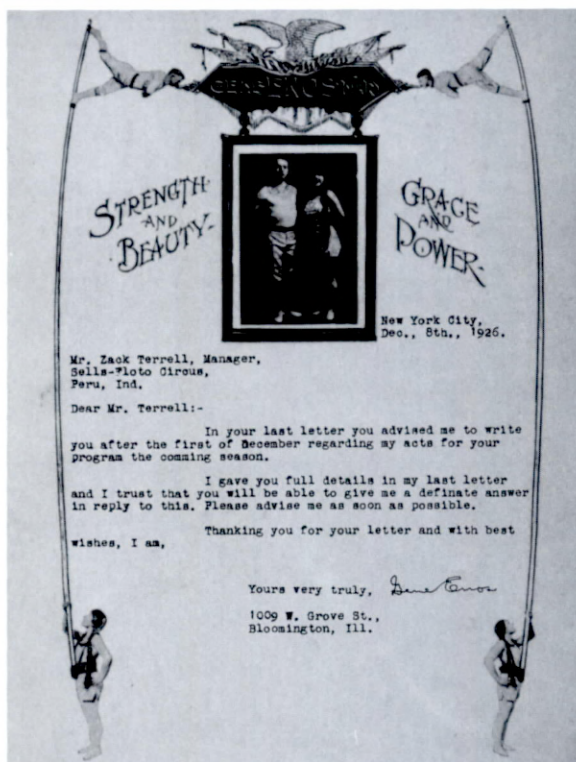 GENE ENOS MARY
STRENGTH
AND
BEAUTY-
GRACE
AND
POWER-
New York City,
Dec., 8th., 1926.
Mr. Zack Terrell, Manager,
Sells-Floto Circus,
Peru, Ind.
Dear Mr. Terrell:-
In your last letter you advised me to write
you after the first of December regarding my acts for your
program the comming season.
I gave you full details in my last letter
and I trust that you will be able to give me a definate answer
in reply to this. Please advise me as soon as possible.
Thanking you for your letter and with best
wishes, I am,
Yours very truly, Gene Enos
1009 W. Grove St.,
Bloomington, Ill.